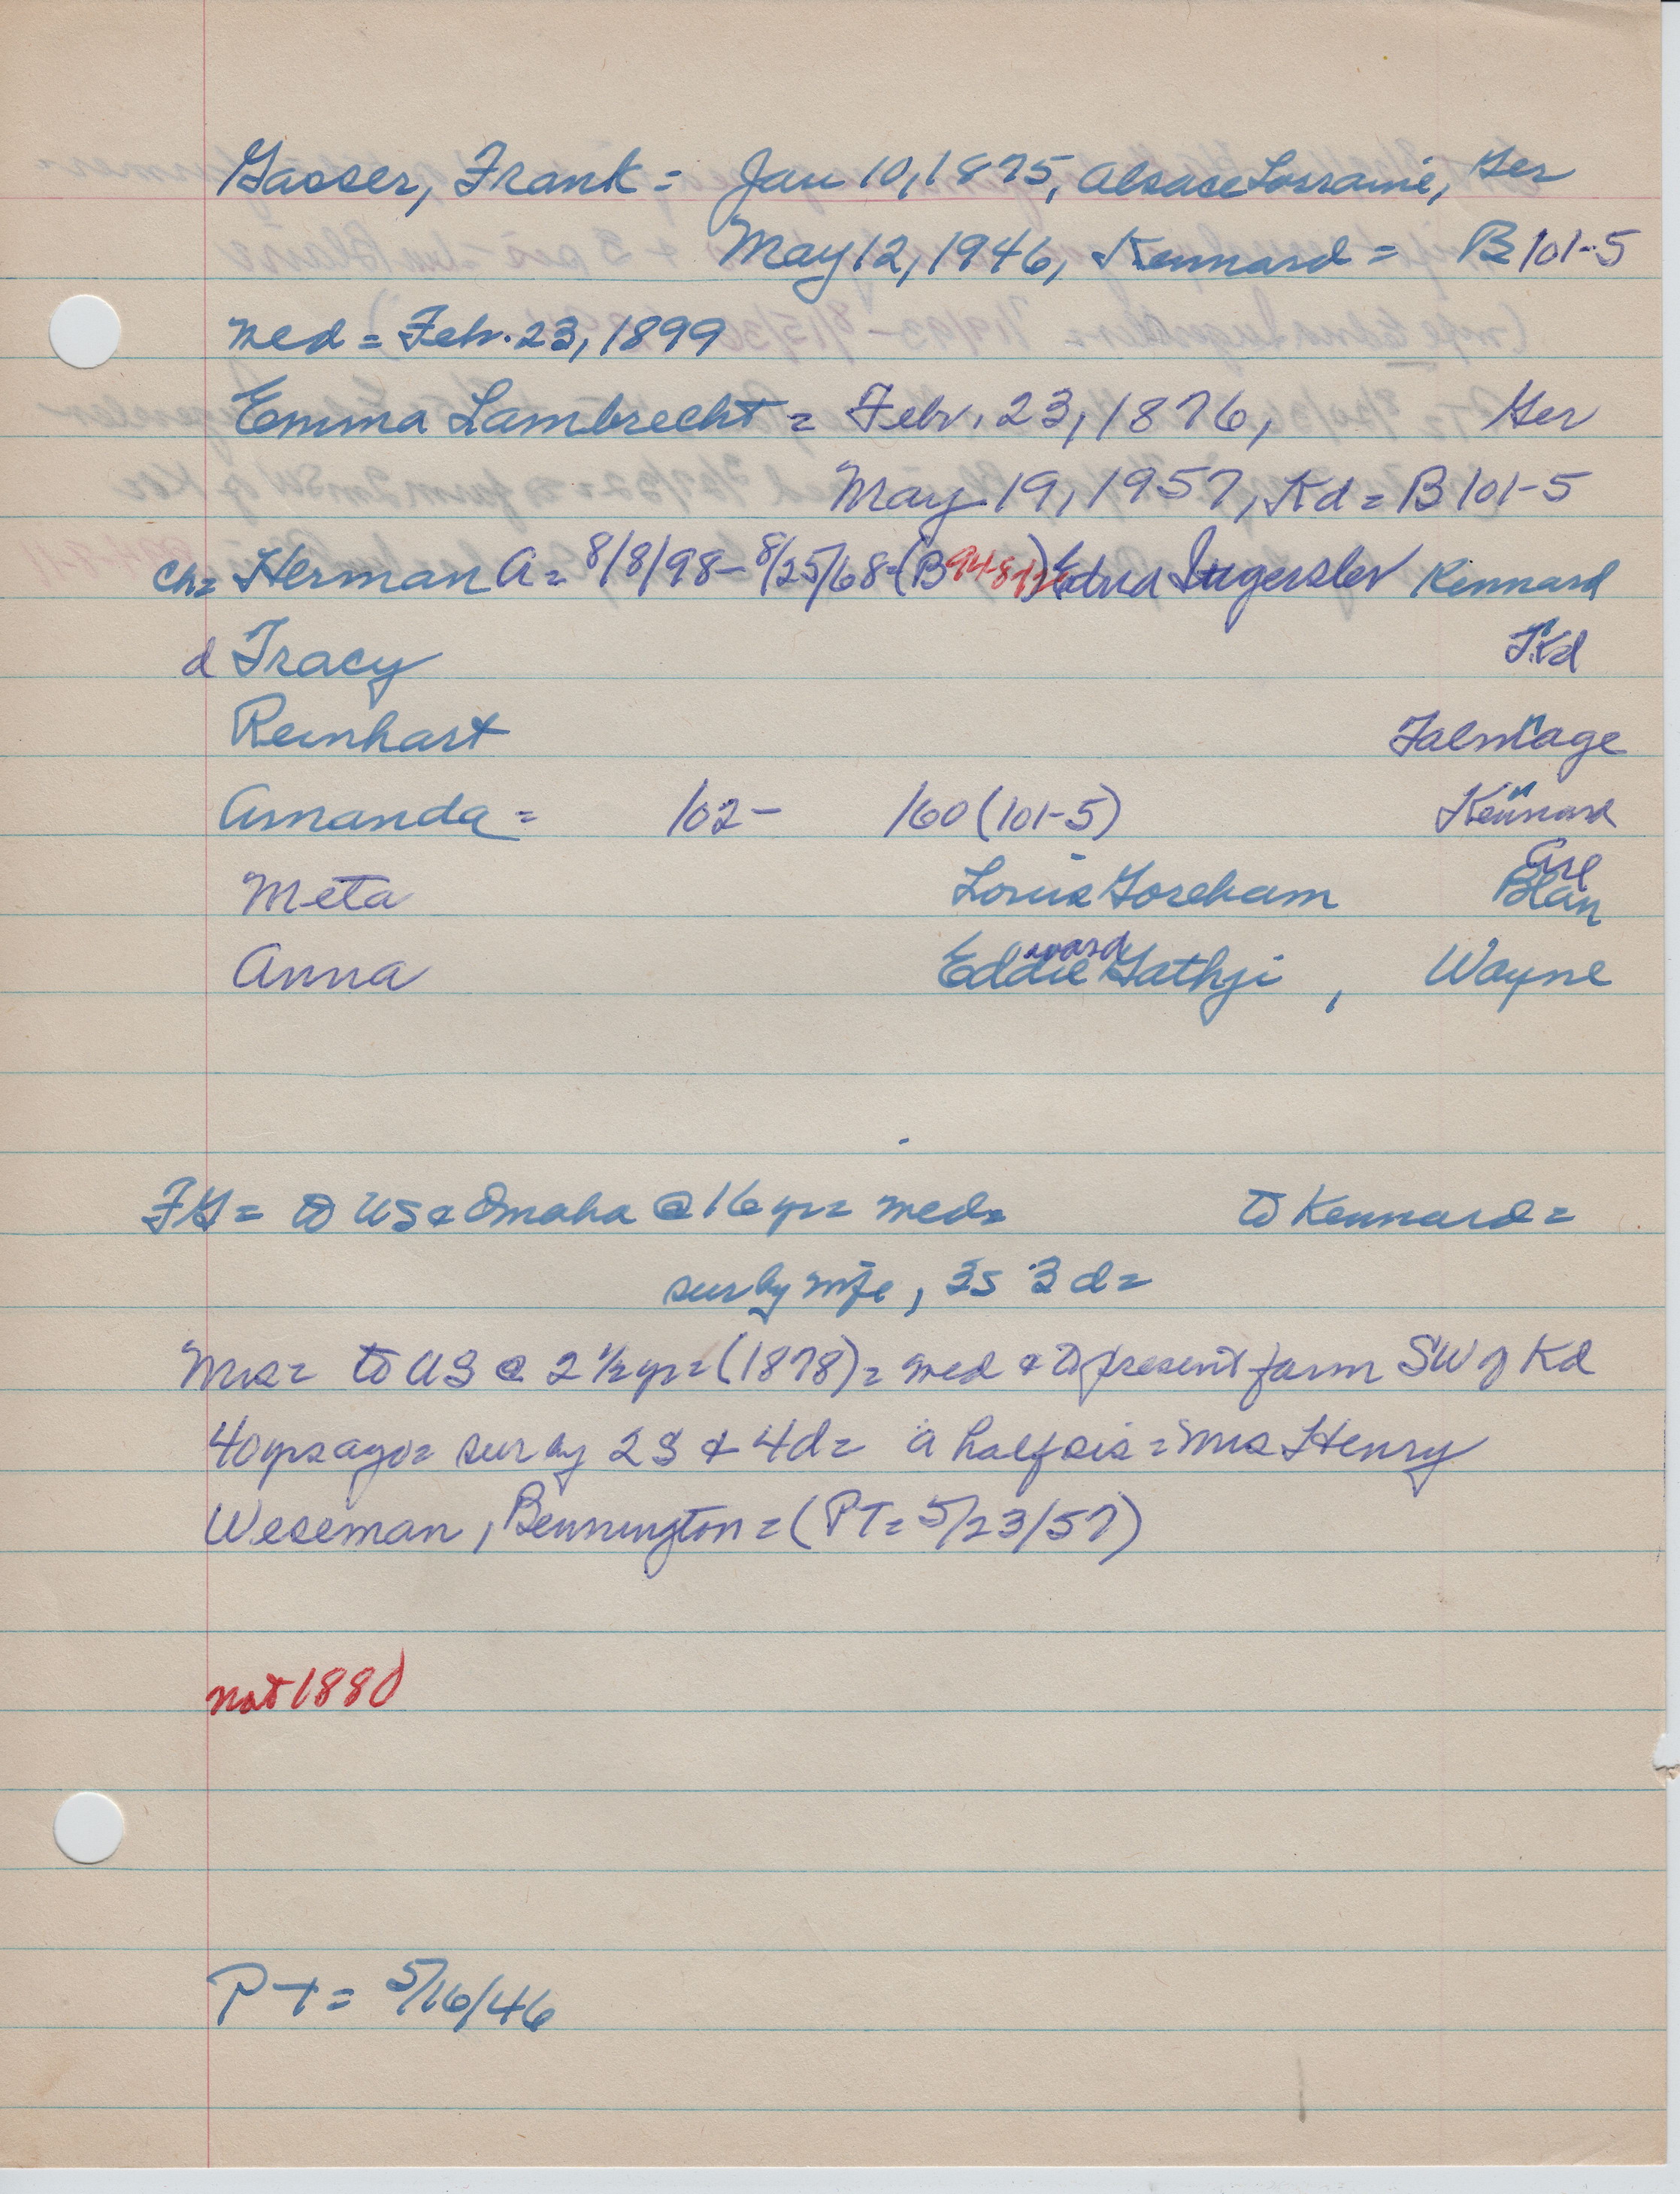 Gasser, Frank = Jan 10, 1875, Alsace Lorraine, Ger
May 12, 1946, Kennard = B 101-5
med = Feb. 23, 1899
Emma Lambrecht = Febr. 23, 1876, Ger
May 19, 1957, Kd = B 101-5
ch= Herman A = 8/8/98 - 8/25/68 - (B Edna Ingerslev Kennard
d Tracy Kd
Reinhart Talmage
Amanda = /02 - /60 (101-5) Kennard
Meta Louis Goreham
Anna Eddie Gathje, Wayne
FG = to US & Omaha @ 16 yr = med = to Kennard =
sur by wife, 3s 3d =
Mrs = to US @ 2 1/2 yr = (1878) = med & to present farm SW of Kd
40 yrs ago = sur by 2S & 4d = a half sis = Mrs Henry
Weseman, Bennington = (PT = 5/23/57)
nat 1880
PT = 5/16/46